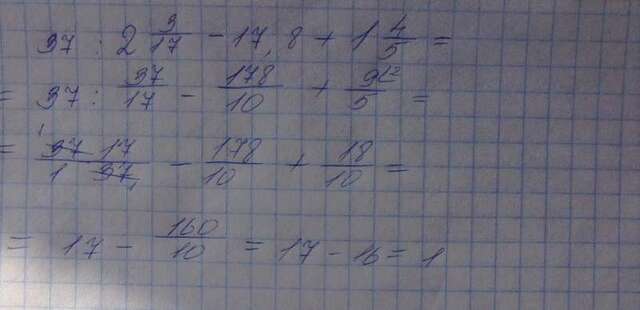 37 : 2 3/17 - 17,8 + 1 4/5 =
= 37 : 37/17 - 178/10 + 9/5 =
= 37 17/1 37 - 178/10 + 18/10 =
= 17 - 160/10 = 17 - 16 = 1